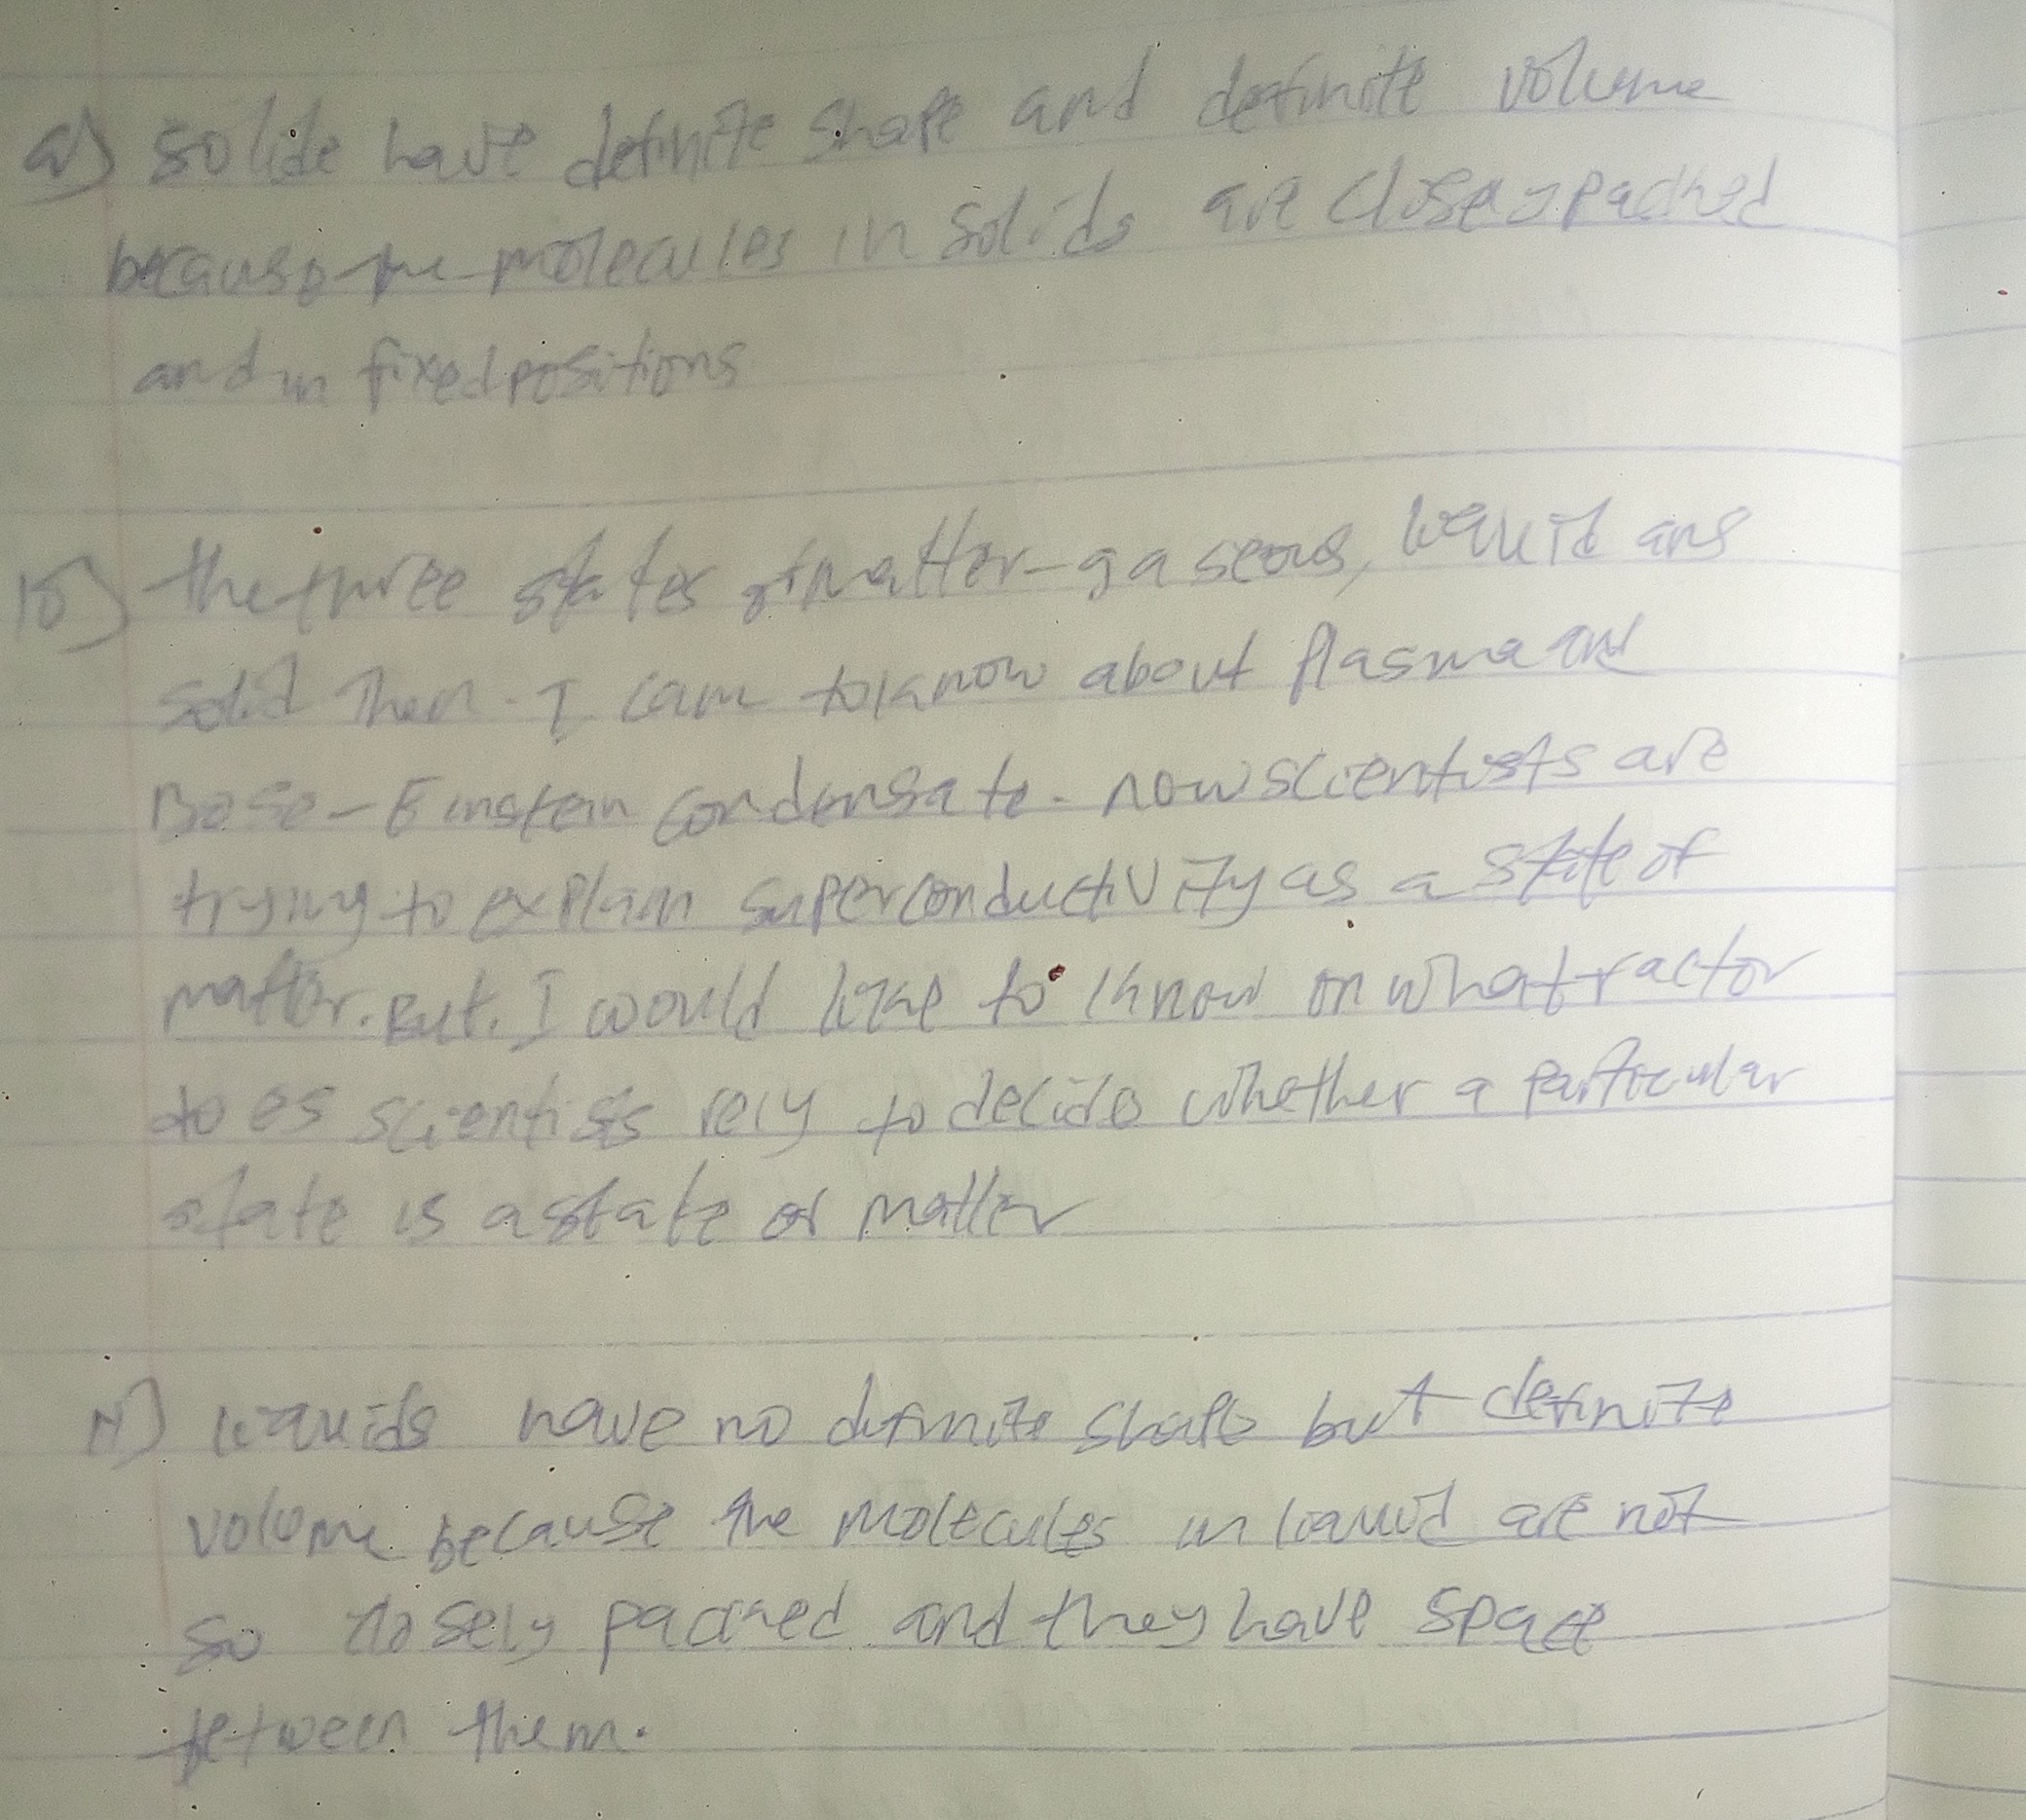 a) solids have definite shape and definite volume
because the molecules in solids are closely packed
and in fixed positions
10) the three states of matter - gaseous, liquid and
solid Then. I came to know about plasma and
Bose-Einstein condensate. now scientists are
trying to explain superconductivity as a state of
matter. But. I would like to know on what factor
does scientists rely to decide whether a particular
state is a state of matter
11) liquids have no definite shape but definite
volume because the molecules in liquid are not
so closely packed and they have space
between them.